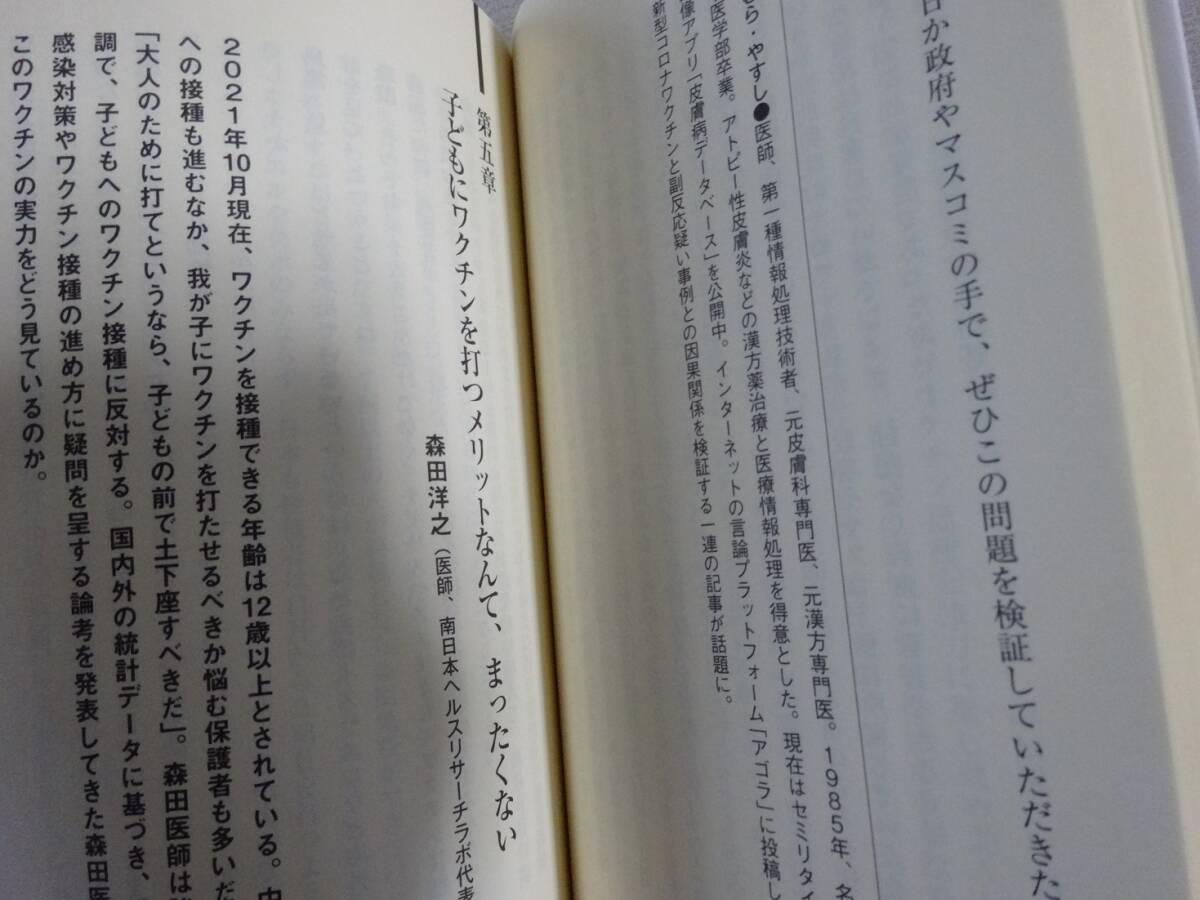 日か政府やマスコミの手で、ぜひこの問題を検証していただきた
むら・やすし●医師、第一種情報処理技術者、元皮膚科専門医、元漢方専門医。1985年、名
医学部卒業。アトピー性皮膚炎などの漢方薬治療と医療情報処理を得意とした。現在はセミリタイ
像アプリ「皮膚病データベース」を公開中。インターネットの言論プラットフォーム「アゴラ」に投稿し
新型コロナワクチンと副反応疑い事例との因果関係を検証する一連の記事が話題に。
第五章
子どもにワクチンを打つメリットなんて、まったくない
森田洋之（医師、南日本ヘルスリサーチラボ代表
2021年10月現在、ワクチンを接種できる年齢は12歳以上とされている。中
への接種も進むなか、我が子にワクチンを打たせるべきか悩む保護者も多いだ
「大人のために打てというなら、子どもの前で土下座すべきだ」。森田医師は
調で、子どもへのワクチン接種に反対する。国内外の統計データに基づき、
感染対策やワクチン接種の進め方に疑問を呈する論考を発表してきた森田医
このワクチンの実力をどう見ているのか。